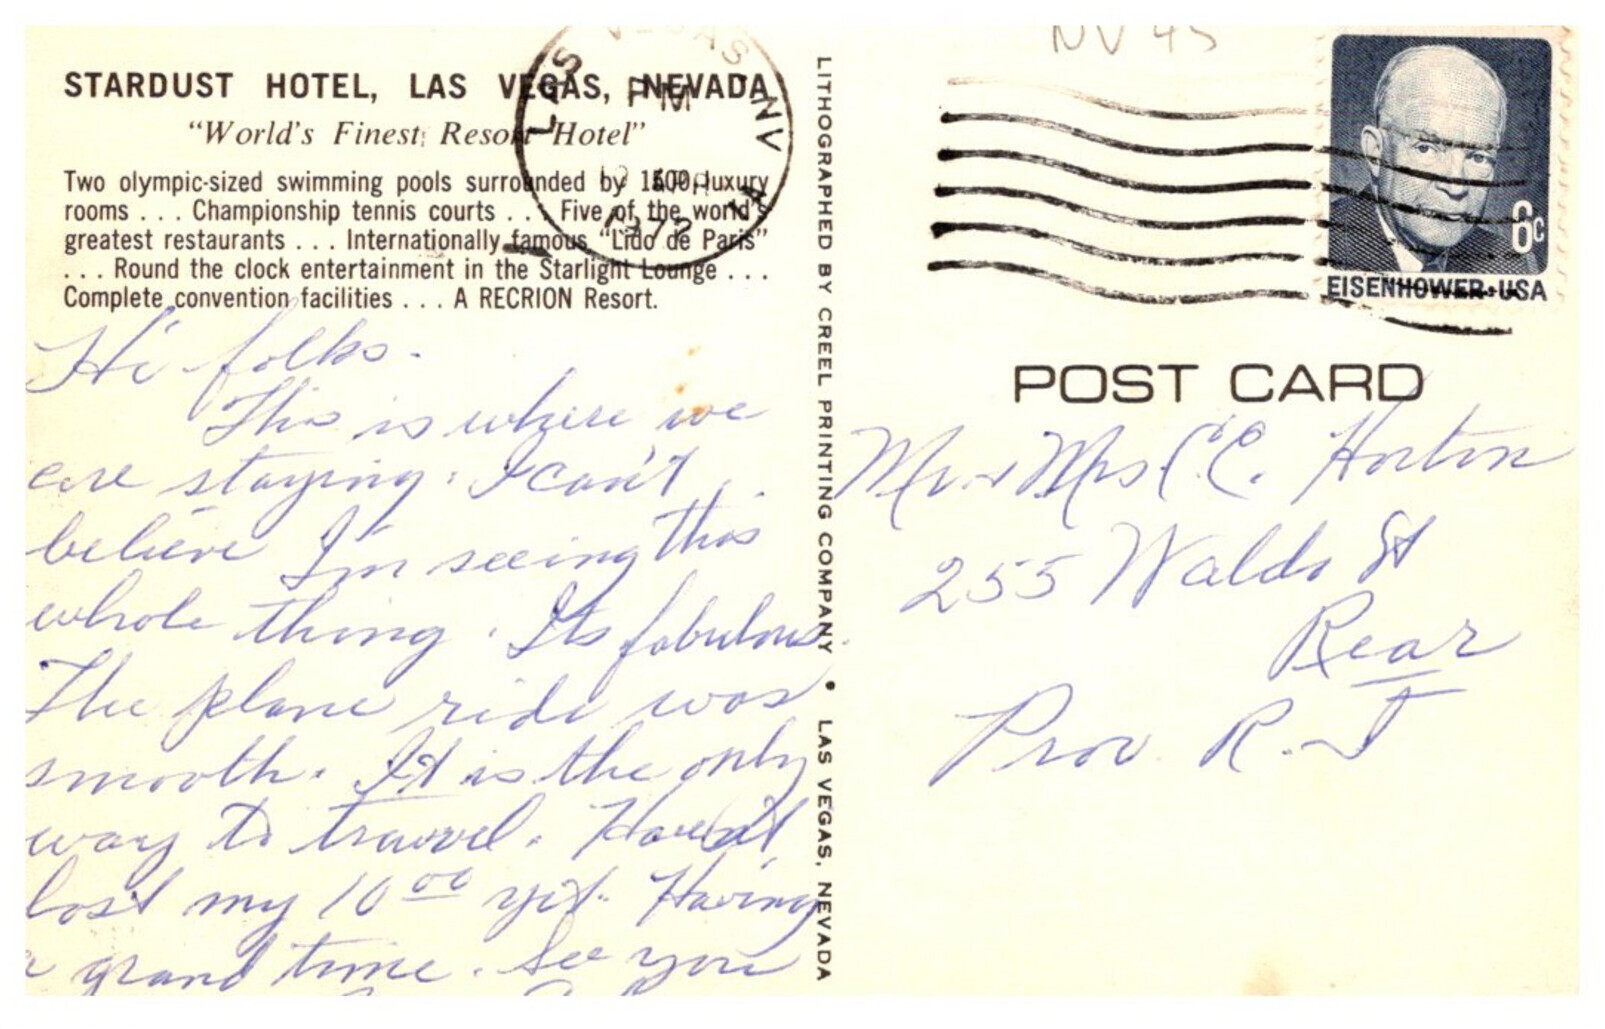 STARDUST HOTEL, LAS VEGAS, NEVADA
"World's Finest Resort Hotel"
Two olympic-sized swimming pools surrounded by 1500 luxury
rooms . . . Championship tennis courts . . . Five of the world's
greatest restaurants . . . Internationally famous "Lido de Paris"
. . . Round the clock entertainment in the Starlight Lounge . . .
Complete convention facilities . . . A RECRION Resort.
LAS VEGAS, NV
PM
1972
Hi folks.
This is where we
are staying. I can't
believe I'm seeing this
whole thing. Its fabulous.
The plane ride was
smooth. It is the only
way to travel. Haven't
lost my 10 00 yet. Having
a grand time. See you
LITHOGRAPHED BY CREEL PRINTING COMPANY • LAS VEGAS, NEVADA
NV 45
6c
EISENHOWER·USA
POST CARD
Mr. & Mrs C.C. Horton
255 Waldo St
Rear
Prov. R.I